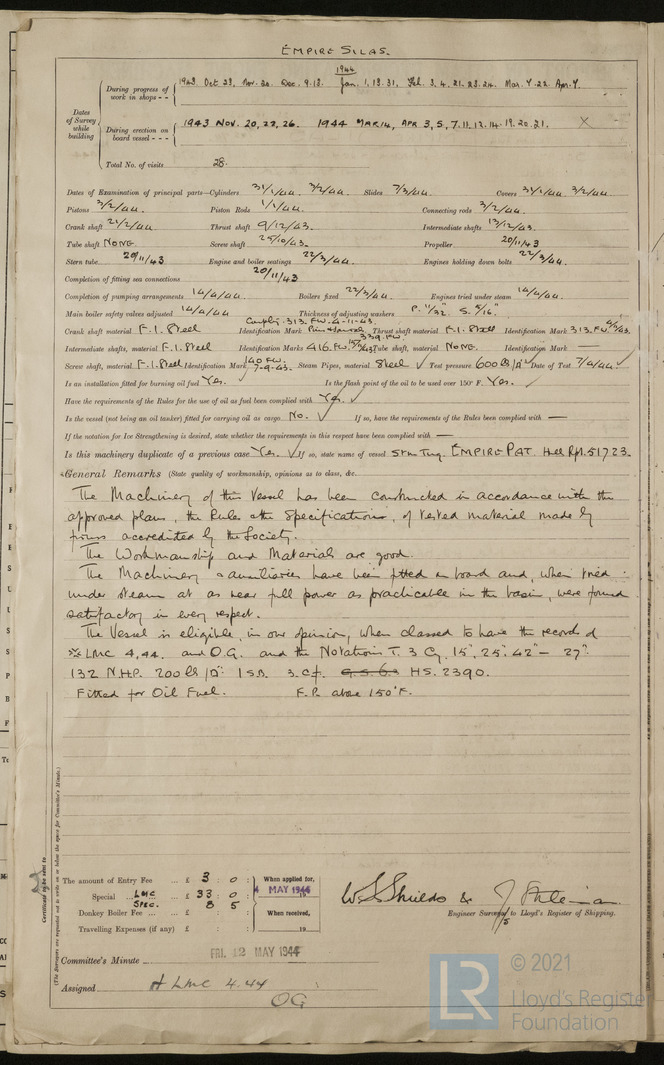 EMPIRE SILAS.
Dates of Survey while building
During progress of work in shops - - 1943. Oct 23. Nov. 30. Dec. 9.13. 1944 Jan. 1.13.31. Feb. 3.4.21.23.24. Mar. 7.22. Apr. 4.
During erection on board vessel - - - 1943 NOV. 20,22,26. 1944 MAR 14, APR 3,5,7.11.12.14.19.20.21. X
Total No. of visits 28.
Dates of Examination of principal parts—Cylinders 31/1/44. 3/2/44. Slides 7/3/44. Covers 31/1/44 3/2/44
Pistons 3/2/44. Piston Rods 1/1/44. Connecting rods 3/2/44.
Crank shaft 21/2/44 Thrust shaft 9/12/43. Intermediate shafts 13/12/43.
Tube shaft NONE. Screw shaft 25/10/43. Propeller 20/11/43
Stern tube 20/11/43 Engine and boiler seatings 22/3/44. Engines holding down bolts 22/3/44.
Completion of fitting sea connections 20/11/43
Completion of pumping arrangements 14/4/44. Boilers fixed 22/3/44. Engines tried under steam 14/4/44.
Main boiler safety valves adjusted 14/4/44 Thickness of adjusting washers P. 11/32. S. 5/16".
Crank shaft material F.I. Steel Identification Mark 313. FW. 4-11-43. Thrust shaft material F.I. Steel Identification Mark 313. FW.
Intermediate shafts, material F.I. Steel Identification Marks 416. FW. 339. FW. Tube shaft, material NONE. Identification Mark —
Screw shaft, material F.I. Steel Identification Mark 140 FW. 7-9-43. Steam Pipes, material Steel ✓ Test pressure 600 lb/□" Date of Test 7/4/44 ✓
Is an installation fitted for burning oil fuel Yes. ✓ Is the flash point of the oil to be used over 150° F. Yes. ✓
Have the requirements of the Rules for the use of oil as fuel been complied with Yes. ✓
Is the vessel (not being an oil tanker) fitted for carrying oil as cargo No. ✓ If so, have the requirements of the Rules been complied with —
If the notation for Ice Strengthening is desired, state whether the requirements in this respect have been complied with —
Is this machinery duplicate of a previous case Yes. ✓ If so, state name of vessel Stm Tug. EMPIRE PAT. Hull Rpt. 51723.
General Remarks (State quality of workmanship, opinions as to class, &c.
The Machinery of this Vessel has been constructed in accordance with the
approved plans, the Rules & the Specifications, of tested material made by
firms accredited by the Society.
The Workmanship and Materials are good.
The Machinery & auxiliaries have been fitted on board and, when tried
under steam at as near full power as practicable in the basin, were found
satisfactory in every respect.
The Vessel is eligible, in our opinion, when classed to have the records of
LMC 4,44. and O.G. and the Notation T. 3 Cy. 15", 25", 42" – 27".
132 N.H.P. 200 lb/□" 1 S.B. 3 c.f. HS. 2390.
Fitted for Oil Fuel. F.P. above 150°F.
Certificate to be sent to
(The Surveyors are requested not to write on or below the space for Committee's Minute.)
The amount of Entry Fee ... £ 3 : 0 : When applied for,
Special LMC ... £ 33 : 0 : MAY 1944
SPEC. 8 5
Donkey Boiler Fee ... ... £ : : When received,
Travelling Expenses (if any) £ : : 19
W S Shields &
Engineer Surveyor to Lloyd's Register of Shipping.
Committee's Minute FRI. 12 MAY 1944
Assigned LMC 4.44
OG
LR
© 2021
Lloyd's Register
Foundation